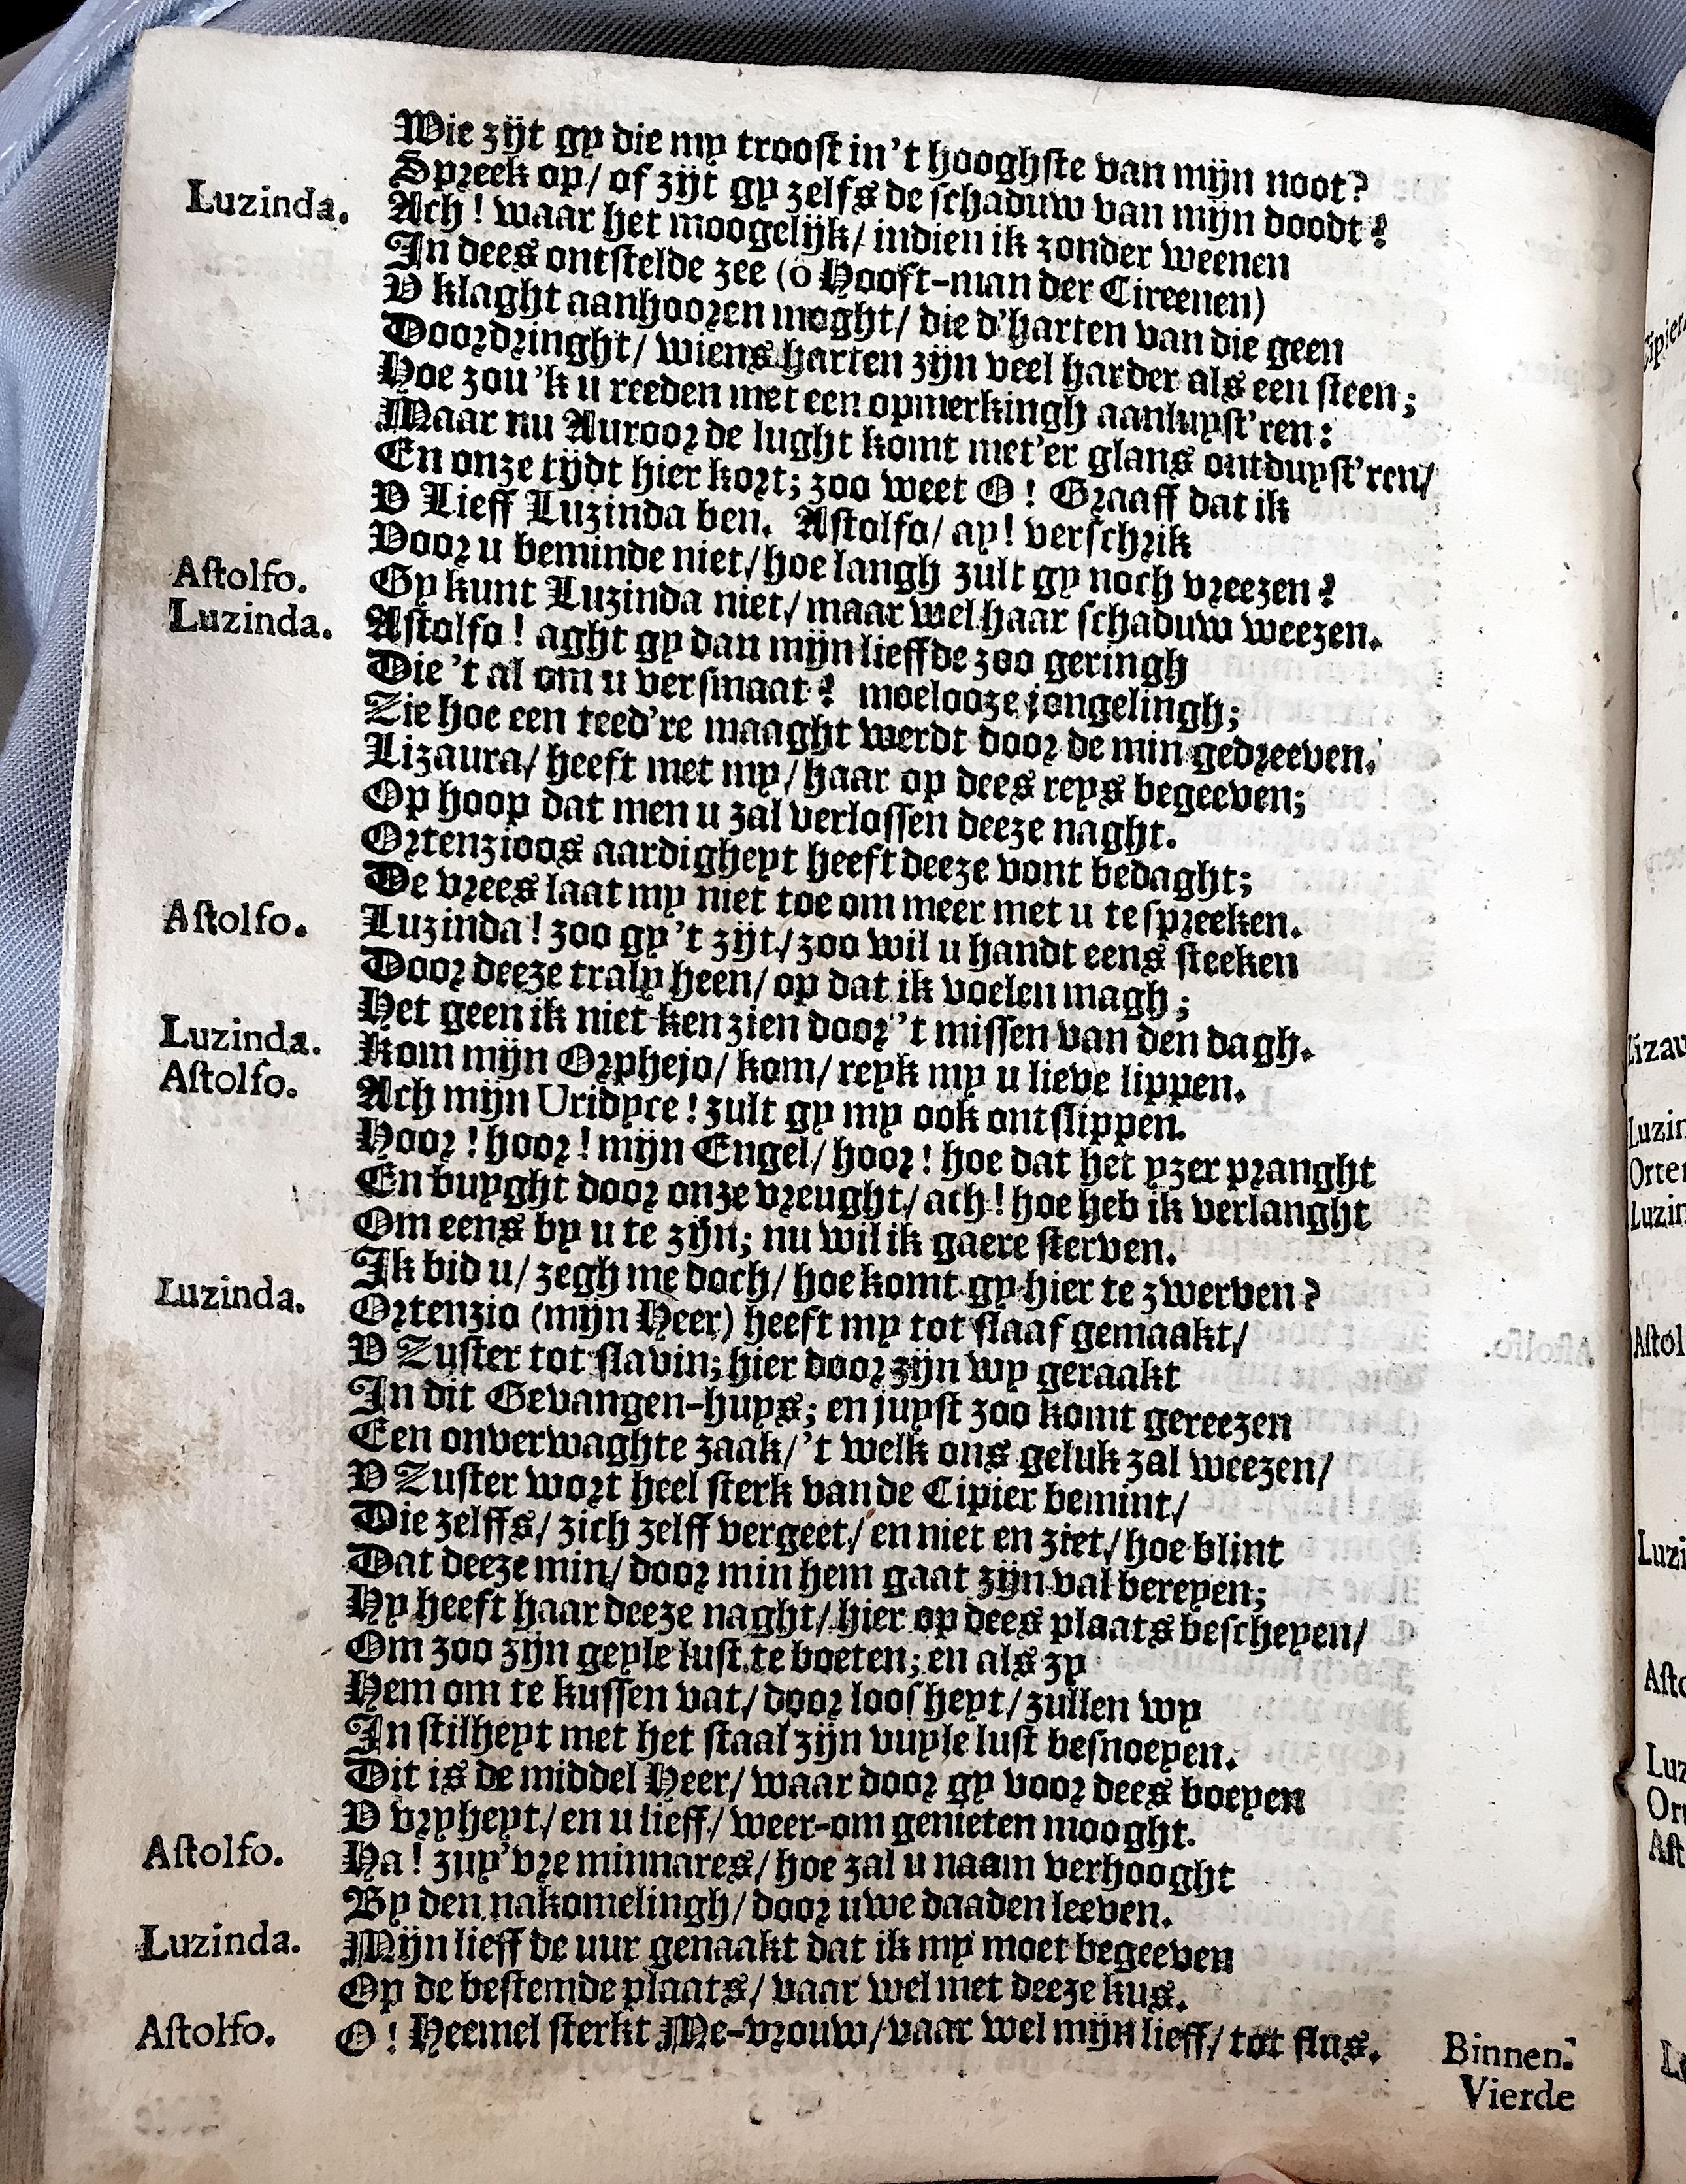 Wie zijt gy die my troost in't hooghste van mijn noot?
Spreek op/ of zijt gy zelfs de schaduw van mijn doodt?
Luzinda. Ach! waar het moogelijk/ indien ik zonder weenen
In dees ontstelde zee (ô Hooft-man der Cireenen)
V klaght aanhooren moght/ die d'harten van die geen
Doordringht/ wiens harten zijn veel harder als een steen;
Hoe zou'k u reeden met een opmerkingh aanluyst'ren:
Maar nu Auroor de lught komt met'er glans ontduyst'ren/
En onze tijdt hier kort; zoo weet O! Graaff dat ik
V Lieff Luzinda ben. Astolfo/ ay! verschrik
Voor u beminde niet/ hoe langh zult gy noch vreezen?
Astolfo. Gy kunt Luzinda niet/ maar wel haar schaduw weezen.
Luzinda. Astolfo! aght gy dan mijn lieffde zoo geringh
Die 't al om u versmaat? moelooze jongelingh;
Zie hoe een teed're maaght werdt door de min gedreeven.
Lizaura/ heeft met my/ haar op dees reys begeeven;
Op hoop dat men u zal verlossen deeze naght.
Ortenzioos aardigheyt heeft deeze vont bedaght;
De vrees laat my niet toe om meer met u te spreeken.
Astolfo. Luzinda! zoo gy 't zijt/ zoo wil u handt eens steeken
Door deeze traly heen/ op dat ik voelen magh;
Het geen ik niet ken zien door 't missen van den dagh.
Luzinda. Kom mijn Orphejo/ kom/ reyk my u lieve lippen.
Astolfo. Ach mijn Uridyce! zult gy my ook ontslippen.
Hoor! hoor! mijn Engel/ hoor! hoe dat het yzer pranght
En buyght door onze vreught/ ach! hoe heb ik verlanght
Om eens by u te zijn; nu wil ik gaere sterven.
Ik bid u/ zegh me doch/ hoe komt gy hier te zwerven?
Luzinda. Ortenzio (mijn Heer) heeft my tot slaaf gemaakt/
V Zuster tot slavin; hier door zijn wy geraakt
In dit Gevangen-huys; en juyst zoo komt gereezen
Een onverwaghte zaak/ 't welk ons geluk zal weezen/
V Zuster wort heel sterk van de Cipier bemint/
Die zelffs/ zich zelff vergeet/ en niet en ziet/ hoe blint
Dat deeze min/ door min hem gaat zijn val bereyen;
Hy heeft haar deeze naght/ hier op dees plaats bescheyen/
Om zoo zijn geyle lust te boeten; en als zy
Hem om te kussen vat/ door loosheyt/ zullen wy
In stilheyt met het staal zijn vuyle lust besnoeyen.
Dit is de middel Heer/ waar door gy voor dees boeyen
V vryheyt/ en u lieff/ weer-om genieten mooght.
Astolfo. Ha! zuy'vre minnares/ hoe zal u naam verhooght
By den nakomelingh/ door uwe daaden leeven.
Luzinda. Mijn lieff de uur genaakt dat ik my moet begeeven
Op de bestemde plaats/ vaar wel met deeze kus.
Astolfo. O! Heemel sterkt Me-vrouw/ vaar wel mijn lieff/ tot flus. Binnen.
Vierde